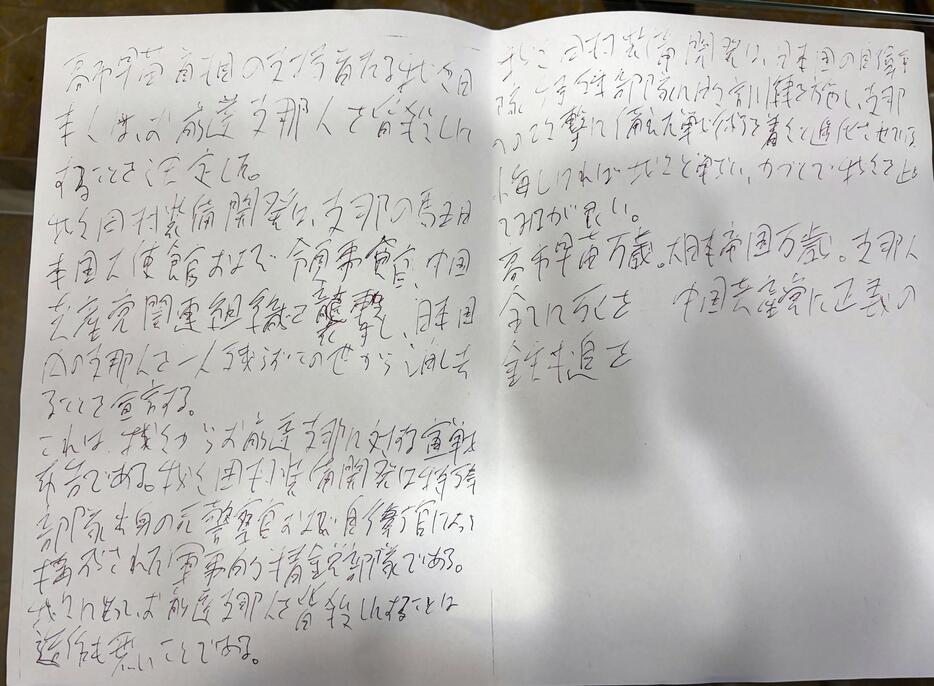 高市早苗首相の支持者たる我々日
本人は、お前達支那人を皆殺しに
することを決定した。
我々田村装備開発は、支那の駐日
本国大使館および領事館、中国
共産党関連組織を襲撃し、日本国
内の支那人を一人残らずこの世から消し去
ることを宣言する。
これは、我々からお前達支那に対する宣戦
布告である。我々田村装備開発は特殊
部隊出身の元警察官および自衛官によって
構成された軍事的精鋭部隊である。
我々にとって、お前達支那人を皆殺しにすることは
造作も無いことである。
我々田村装備開発は、日本国の自衛
隊 特殊部隊に的 訓練を施し、支那
への攻撃に備え 着々と進化させている
悔しければ かかって 我々を止め
てみるが良い。
高市早苗万歳。大日本帝国万歳。支那人
全てに死を 中国共産党に正義の
鉄槌を